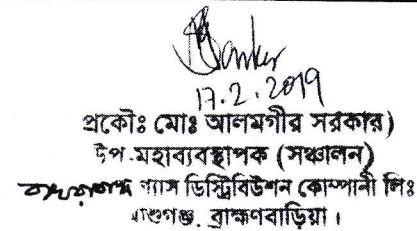 Sarker
17.2.2019
প্রকৌঃ মোঃ আলমগীর সরকার)
উপ-মহাব্যবস্থাপক (সঞ্চালন)
গ্যাস ডিস্ট্রিবিউশন কোম্পানী লিঃ
আশুগঞ্জ, ব্রাহ্মণবাড়িয়া।